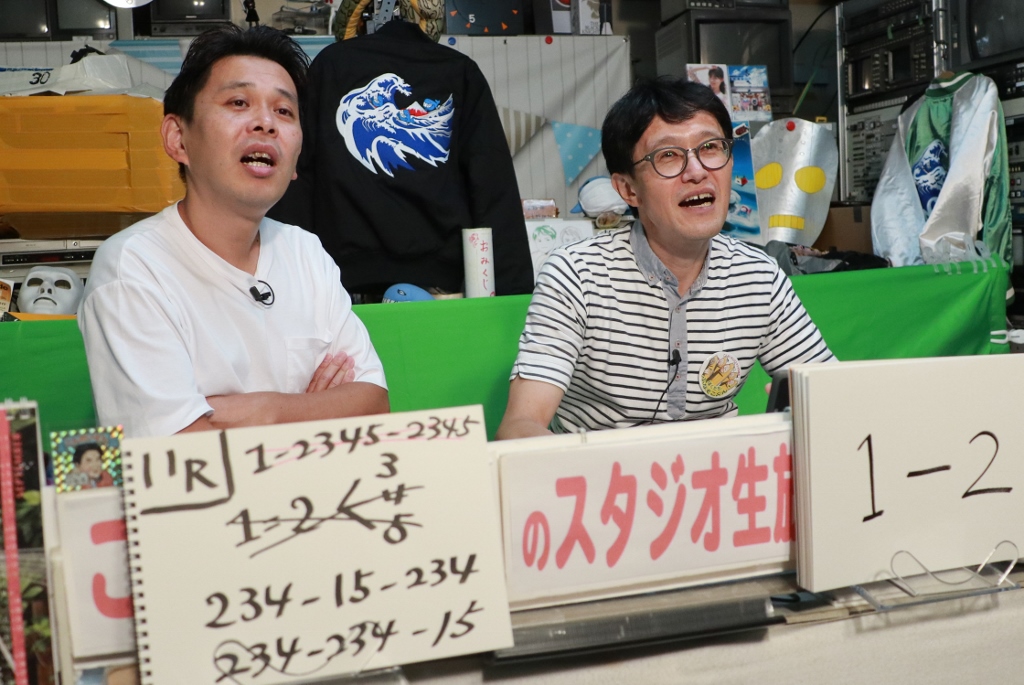 30
5
おみくじ
11R
1-2345-2345
1=2<3
4
5
234-15-234
234-234-15
のスタジオ生放
1-2